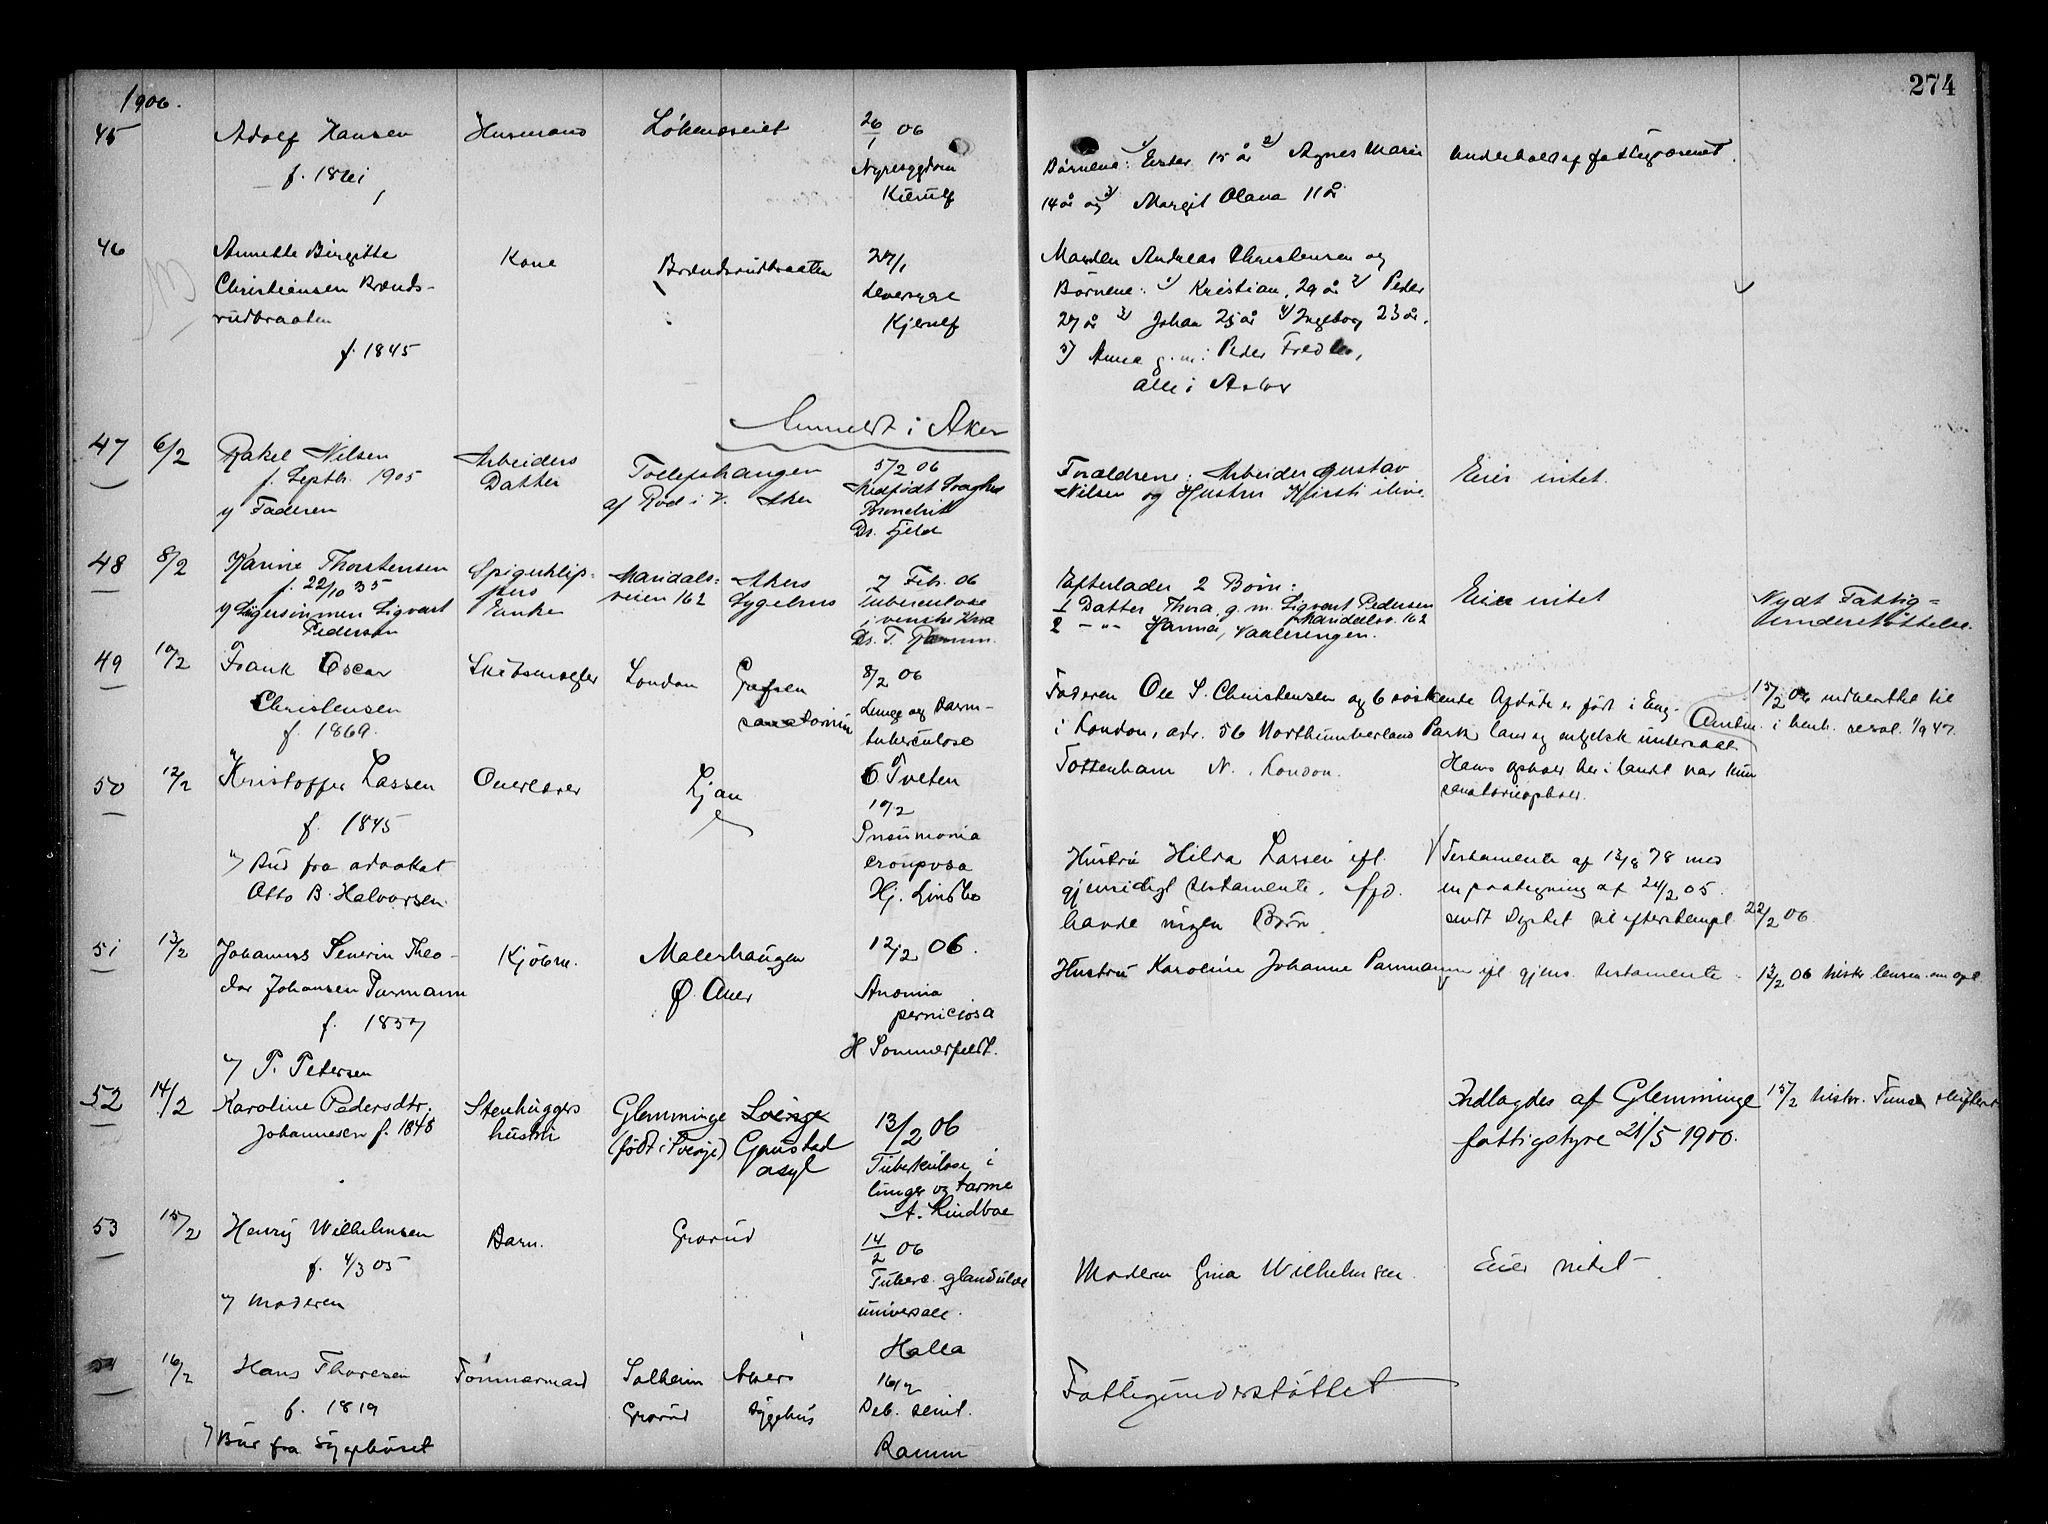 274
1906.
45 Adolf Hansen Husmand 26/1 06
f. 1861 Nyresygdom
Kierulf
Børnene: 1) Ester 15 år 2) Agnes Marie
14 år og 3) Margit Olava 11 år
Underholdt af fattigvæsenet.
46 Annette Birgitte Kone Brændsrudbraaten 27/1
Christiansen Brænds-
rudbraaten Kjerulf
f. 1845
Manden Andreas Christensen og
Børnene: 1) Kristian, 29 år 2) Peder
27 år 3) Johan 25 år 4) Ingeborg 23 år,
5) Anna g. m: Peder
alle i Asker
Anmeldt i Aker
47 6/2 Rakel Nilsen Arbeiders Tollefshaugen 5/2 06
f. Septbr. 1905 Datter af Rød i V. Aker Medfødt
v/ Faderen
Dr. Fjeld
Forældrene: Arbeider Gustav Eier intet.
Nilsen og Hustru Kirsti
48 8/2 Karine Thorstensen Maridals- Akers 7 Febr. 06
f. 22/10 35 Enke veien 162 Sygehus Tuberculose
v/ Svigersønnen Sigvart i venstre Knæ
Pedersen Dr. T. Ramm.
Efterlader 2 Børn: Eier intet Nydt Fattig-
1 Datter Thora, g. m. Sigvart Pedersen Understøttelse.
Maridalsv. 162
2 -"- Hanna, Vaalerengen.
49 10/2 Frank Oscar Skibsmægler London Grefsen 8/2 06
Christensen sanatorium Lunge og Tarm-
f. 1869. tuberculose
Faderen Ole S. Christensen og 6 søskende Afdøde er født i Eng-
i London, adr. 56 Northumberland Park land og engelsk undersaat
Tottenham N. London. Hans ophold her i landet var kun
sanatorieophold.
15/2 06
50 12/2 Kristoffer Lassen Ljan Tveten
f. 1845 10/2
v/ Bud fra advokat Pneumonia
Otto B. Halvorsen crouposa
Hustru Hilda Lassen ifl. Testamente af 13/8 78 med
gjensidigt testamente. Afd. en paategning af 24/2 05.
havde ingen Børn. 22/2 06.
51 13/2 Johannes Severin Theo- Kjøbm. Malerhaugen 12/2 06.
dor Johansen Purmann Ø. Aker Anæmia
f. 1857 perniciosa
v/ P. Petersen H Sommerfeldt.
Hustru Karoline Johanne Purmann ifl gjens. testamente. 13/2 06
52 14/2 Karoline Pedersdtr. Stenhuggers Glemminge 13/2 06
Johannesen f. 1848 hustru (født i Sverige) Gaustad
asyl Tuberkulose i
lunger og tarme
A. Lindboe
Indlagdes af Glemminge 15/2
fattigstyre 21/5 1900.
53 15/2 Henry Wilhelmsen Barn. Grorud 14/2 06
f. 4/3 05 Tuberc. glandulæ
v/ moderen universale.
Halla
Moderen Gina Wilhelmsen. Eier intet
54 16/2 Hans Thoresen Tømmermand Solheim Akers 16/2
f. 1819 Grorud sygehus Deb. senil.
v/ Bud fra Sygehuset Ramm
Fattigunderstøttet